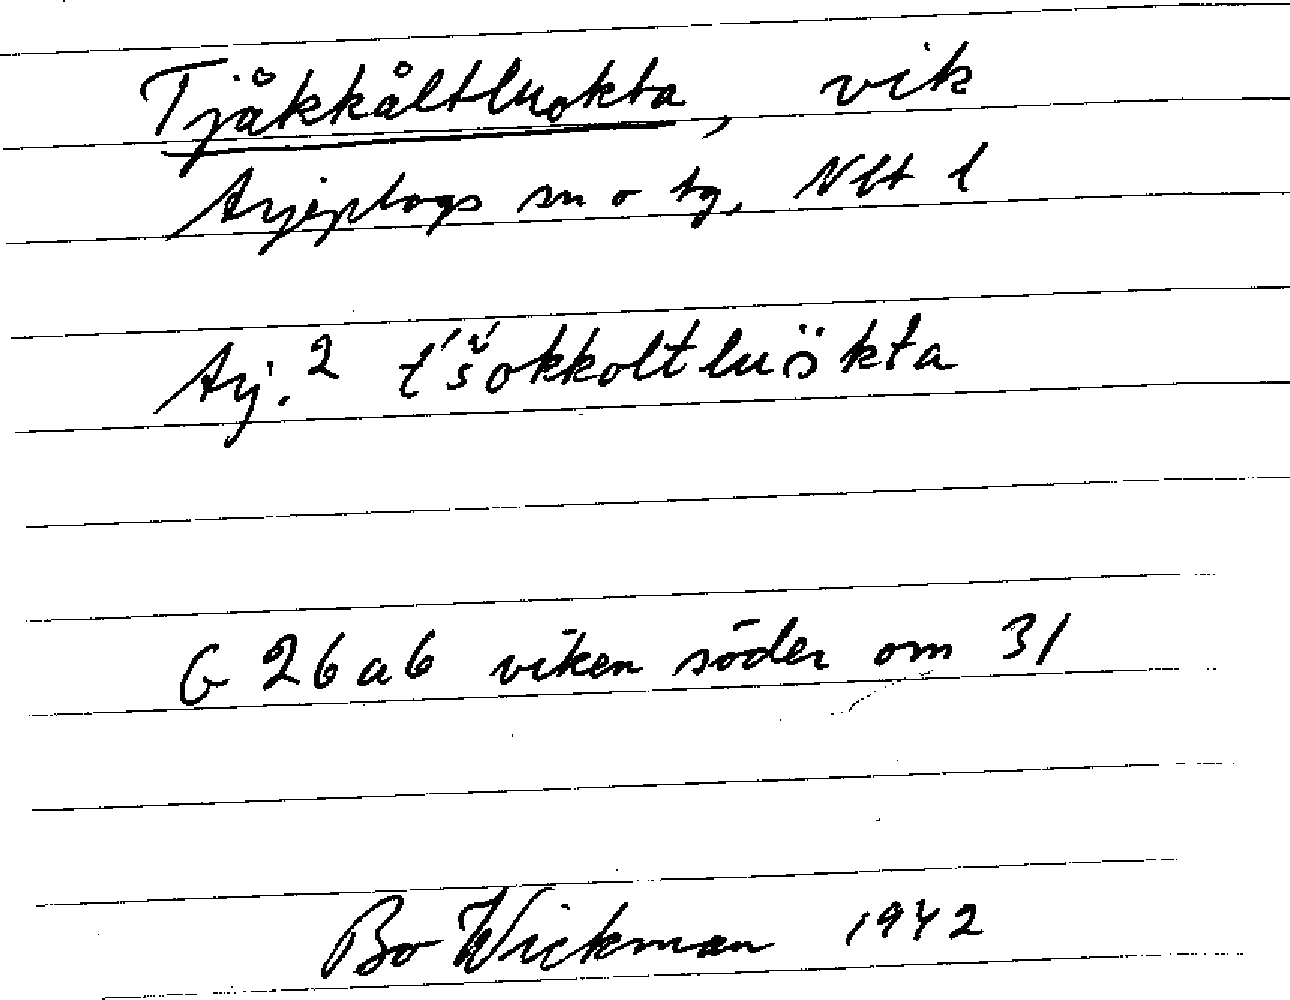 Tjåkkåltluokta, vik
Arjeplogs sn o tg, Nbt l
Arj.² t́š́okkoltluökta
G 26 a b viken söder om 31
Bo Wickman 1942